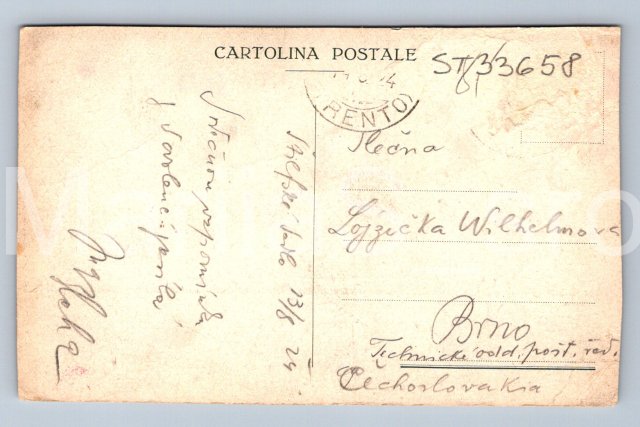 CARTOLINA POSTALE
ST/33658
TRENTO
Srdečnou vzpomínku
z dovolené posílá
13/8 24
Slečna
Lojzička Wilhelmova
Brno
Technické odd. pošt. řed.
Čechoslovakia